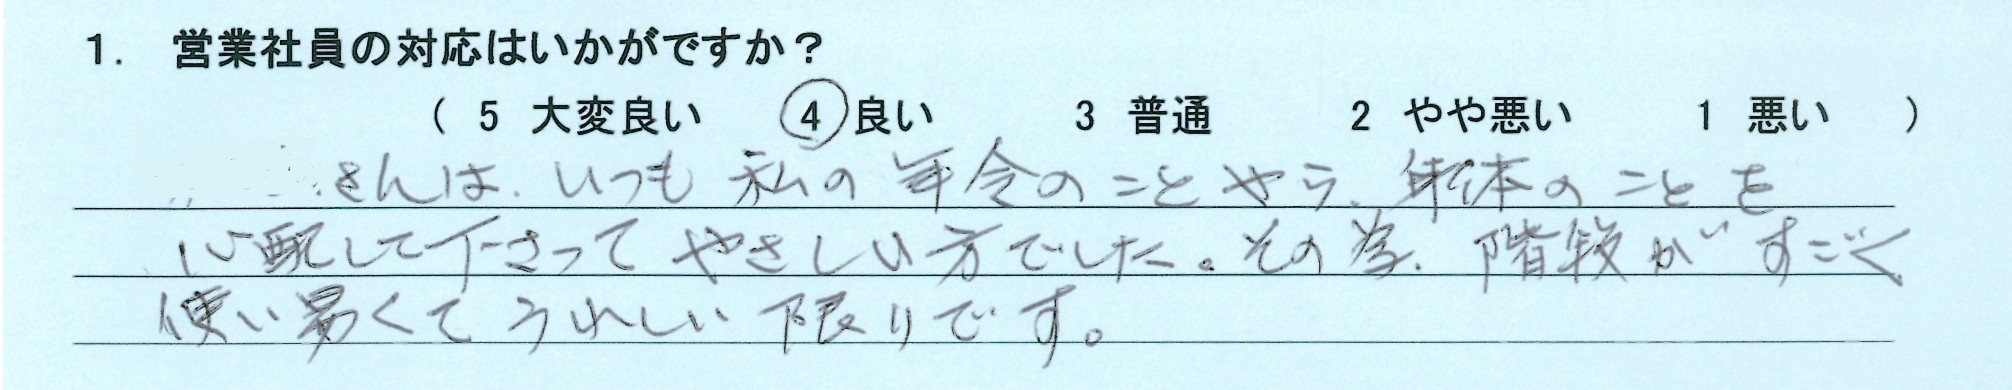 1. 営業社員の対応はいかがですか？
( 5 大変良い 4 良い 3 普通 2 やや悪い 1 悪い )
さんは、いつも私の年令のことやら、身体のことを
心配して下さってやさしい方でした。その為、階段がすごく
使い易くてうれしい限りです。